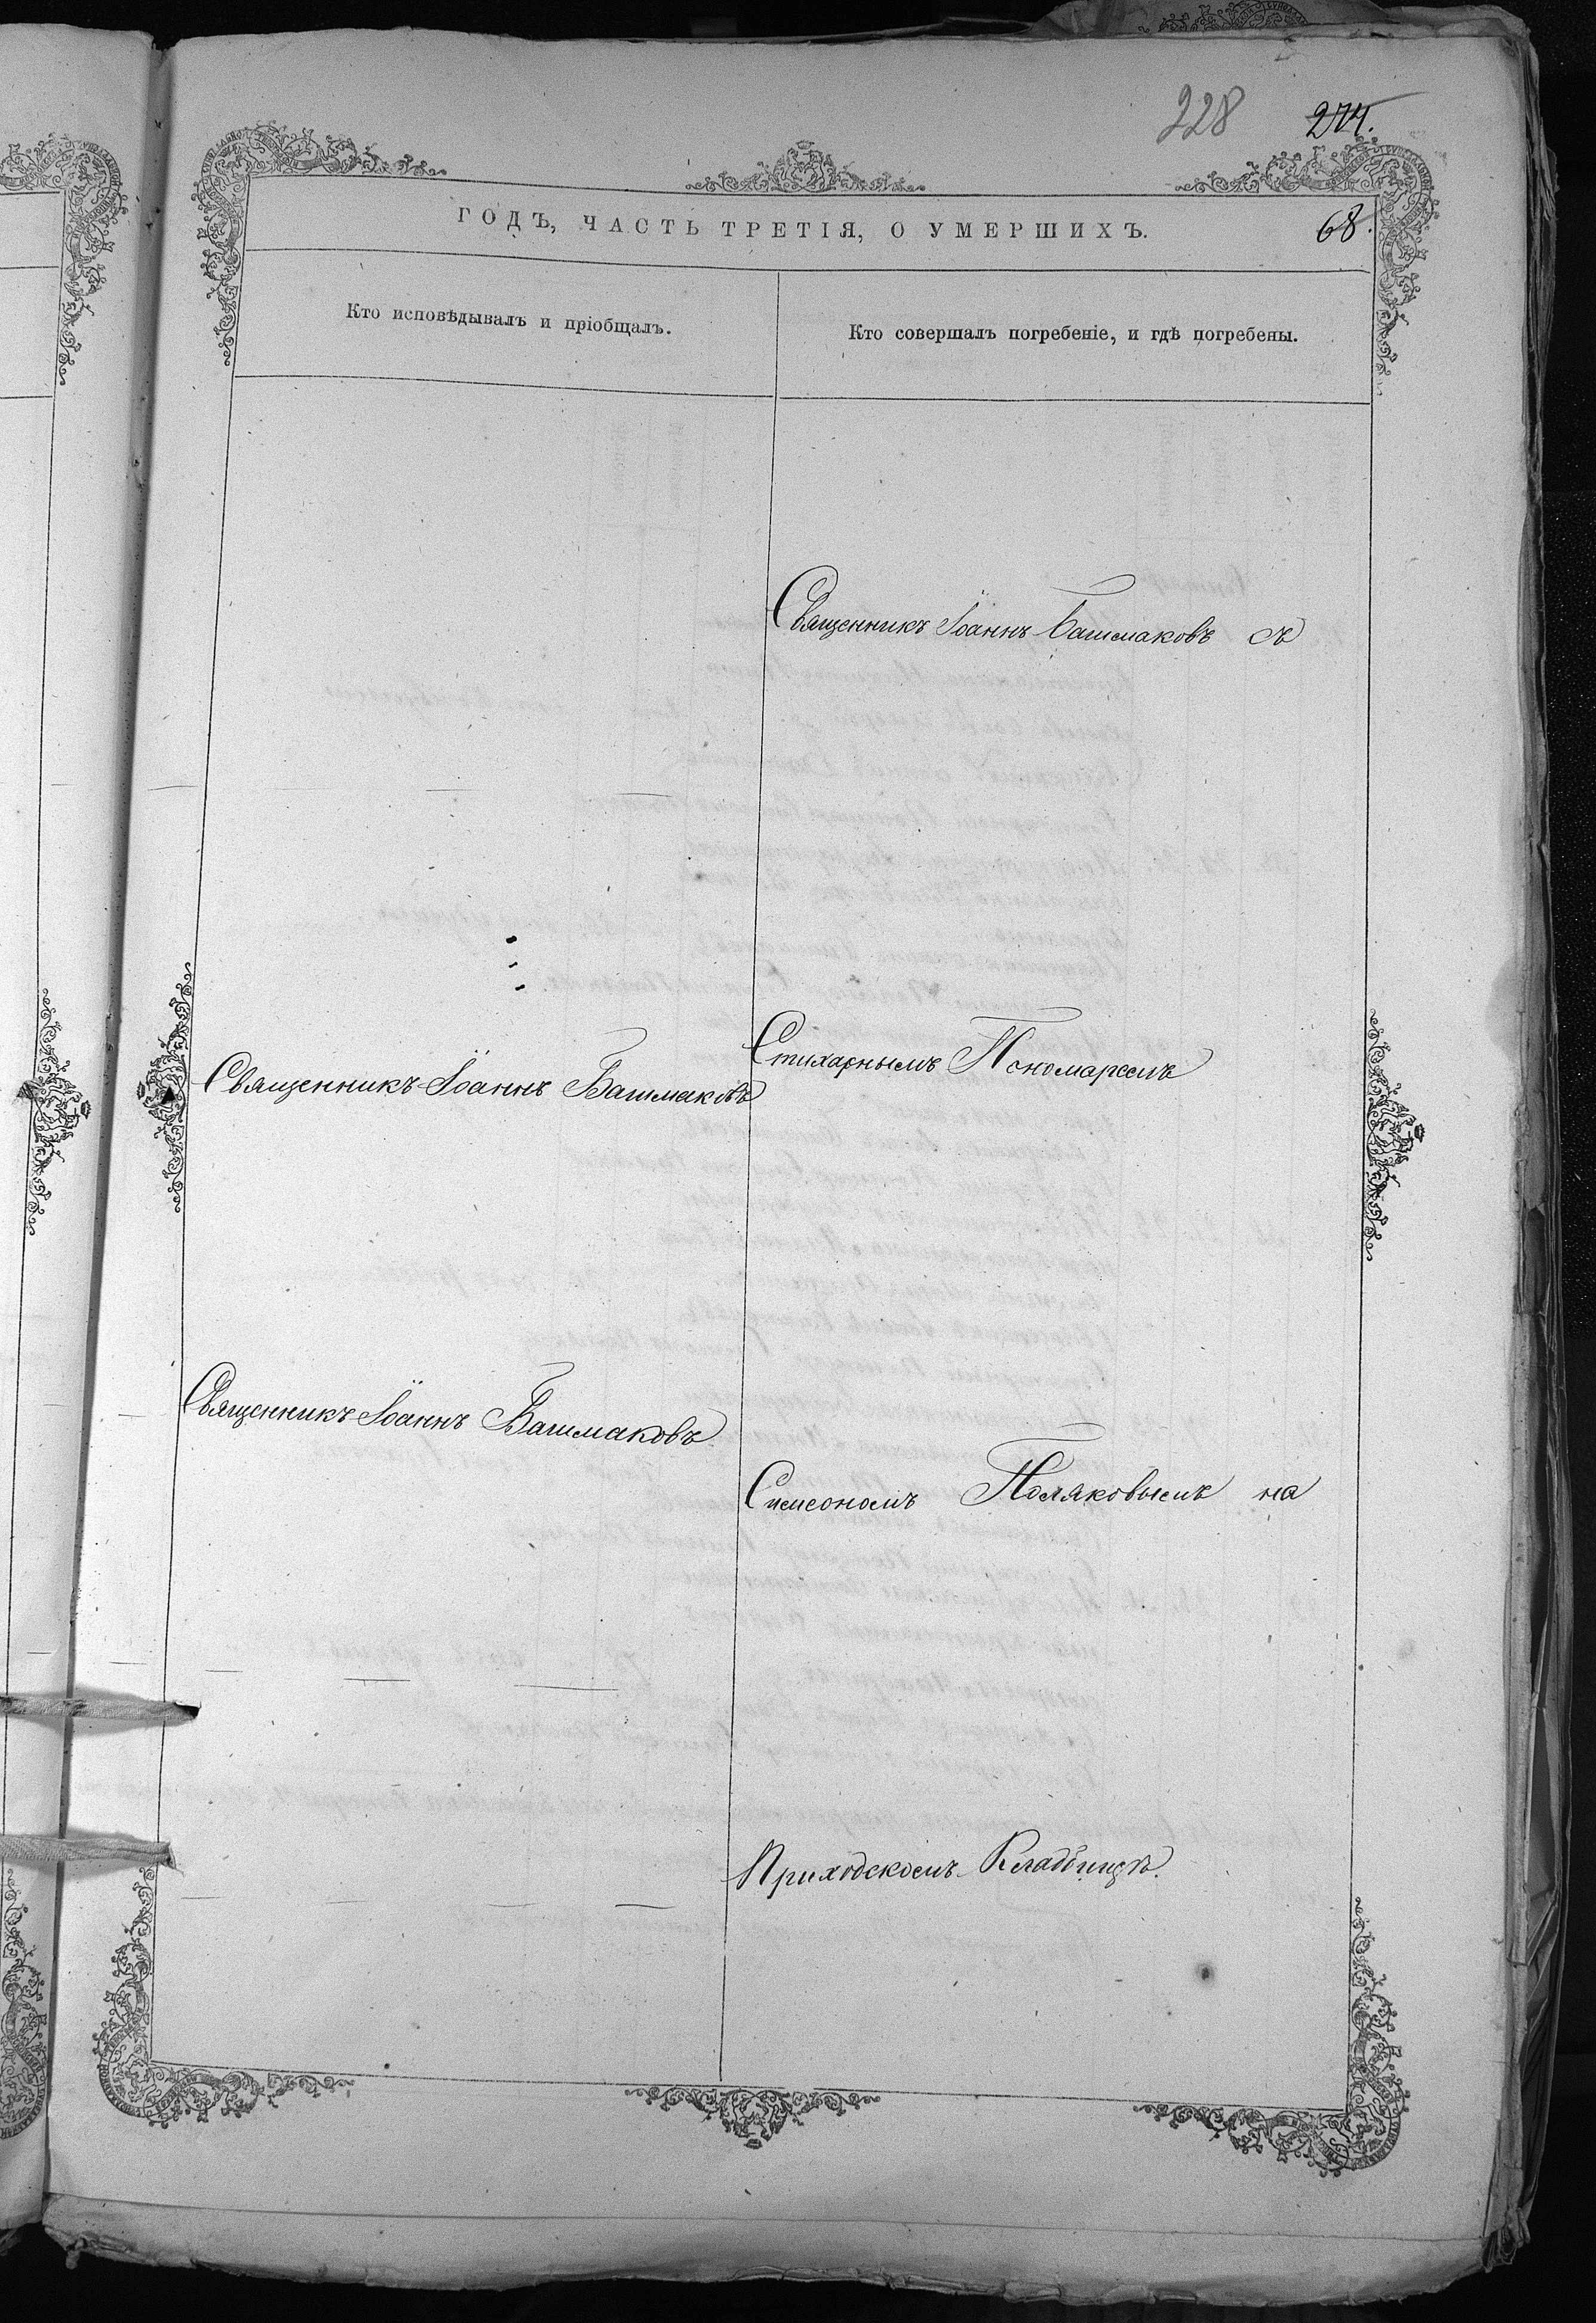 228 274.
ГОДЪ, ЧАСТЬ ТРЕТІЯ, О УМЕРШИХЪ. 68.
Кто исповѣдывалъ и пріобщалъ.
Кто совершалъ погребеніе, и гдѣ погребены.
Священникъ Іоаннъ Башмаковъ съ
Священникъ Іоаннъ Башмаковъ
Стихарнымъ Пономаремъ
Священникъ Іоаннъ Башмаковъ
Симеономъ Поляковымъ на
Приходскомъ Кладбищѣ.